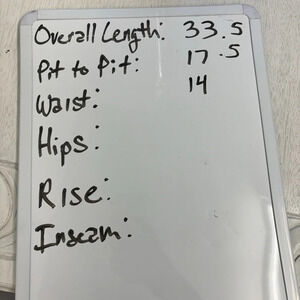 Overall Length: 33.5
Pit to Pit: 17.5
Waist: 14
Hips:
Rise:
Inseam: